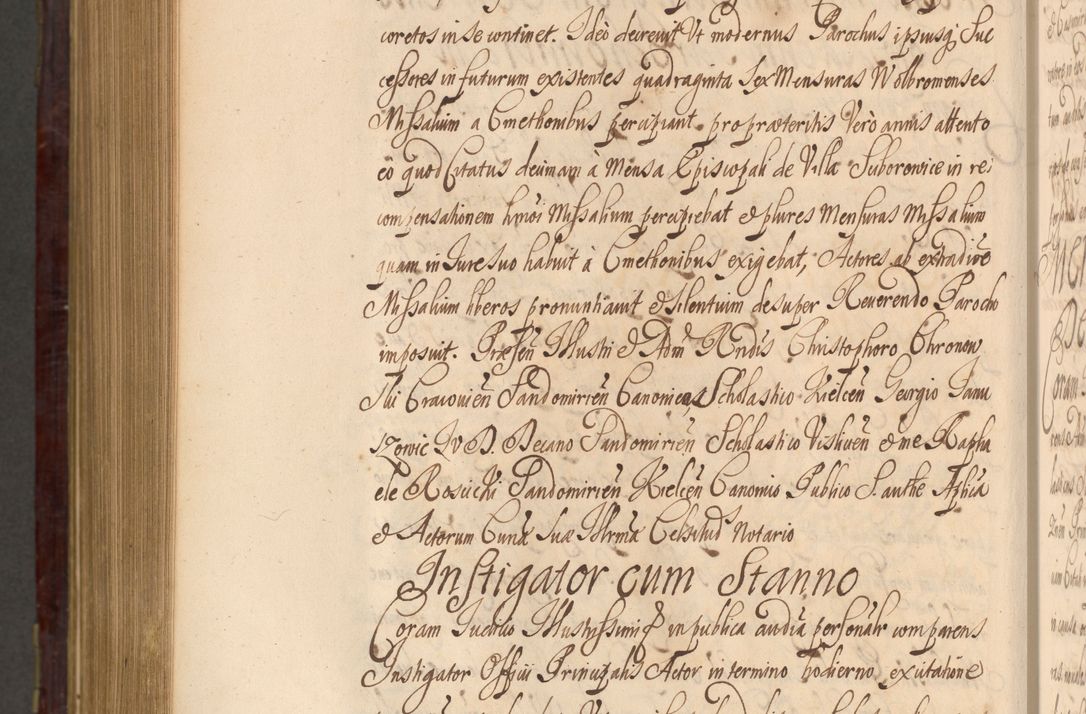 coretos in se continet. Ideò decrevit Vt modernus Parochus ipsiusq Suc
cessores in futurum existentes quadraginta sex Mensuras Wolbromenses
Missalium a Cmethonibus percipiant, pro præteritis Verò annis attento
eò quod Citatus decimam à Mensa Episcopali de Villa Suborowice in re:
compensationem hmoi Missalium percipiebat et plures Mensuras Missalium
quam in Jure suo habuit à Cmethonibus exigebat, Actores ab extradñe
Missalium liberos pronuntiavit et silentium desuper Reverendo Parocho
imposuit. Præsen Illustri et Adm Rndis Christophoro Chronow
ski Cracovien Sandomirien Canonico, Scholastico Kielcen Georgio Janu
szowic JVD. Decano Sandomirien Scholastico Vislicen et me Rapha
ele Rosicki Sandomirien Kielcen Canonico Publico S. authe Aplica
et Actorum Curiæ Suæ Illrmæ Celsitud Notario
Instigator cum Stanno
Coram Iudicio Illustrissimi et in publica audia personalr comparens
Instigator Officii Principalis Actor in termino hodierno ex citatione